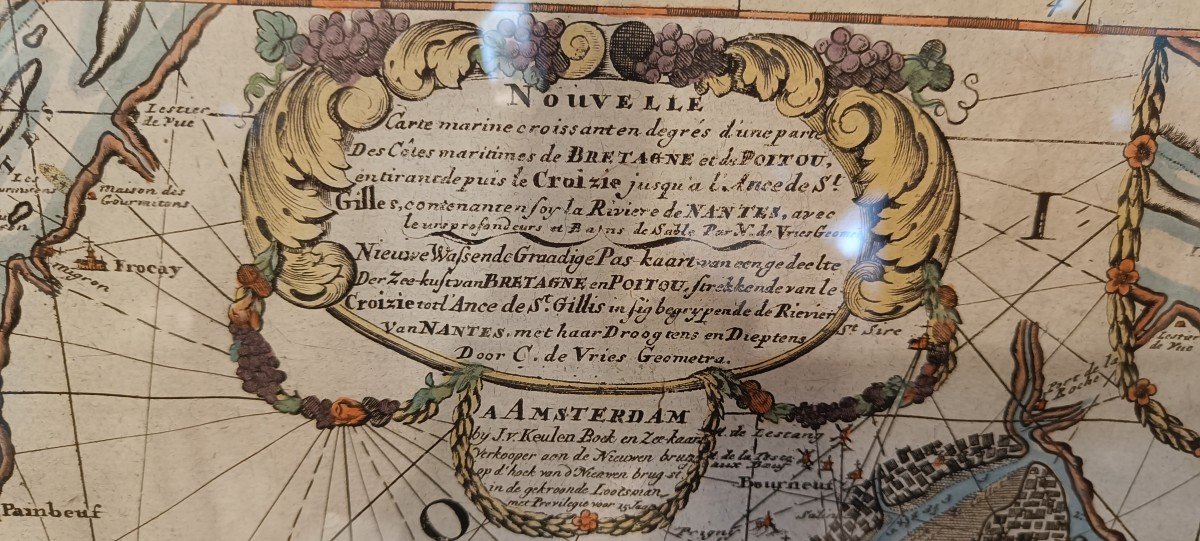 Nouvelle
Carte marine croissant en degrés d'une partie
Des Côtes maritimes de BRETAGNE et de POITOU,
entirant depuis le Croizie jusqu'a l'Ance de St.
Gilles, contenant en soy la Riviere de NANTES, avec
leurs profondeurs et Bancs de Sable Par N. de Vries Geom
Nieuwe Wassende Graadige Pas-kaart van een gedeelte
Der Zee-kust van BRETAGNE en POITOU, strekkende van le
Croizie tot l'Ance de St. Gillis in sig begrypende de Rievier
Van NANTES, met haar Droogtens en Dieptens
Door C. de Vries Geometra.
A AMSTERDAM
by J. v. Keulen Boek en Zee-kaart
Verkooper aan de Nieuwen brug
op d'hoek van d'Nieuwen brug st.
in de gekroonde Lootsman
met Previlegie voor 15 Jaar
Lestier
de Vue
Les
maison des
Gourmitons
Frocay
migron
Pambeuf
O
I
St Sire
Lestier
de Vue
Port de la
Roche
de Lestang
aux Boeuf
Bourneuf
Prigny